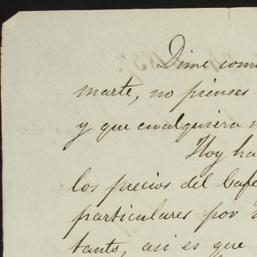 Dime com
marte, no pienses
y que cualquiera
Hoy ha
los precios del Café
particulares por
tanto, asi es que